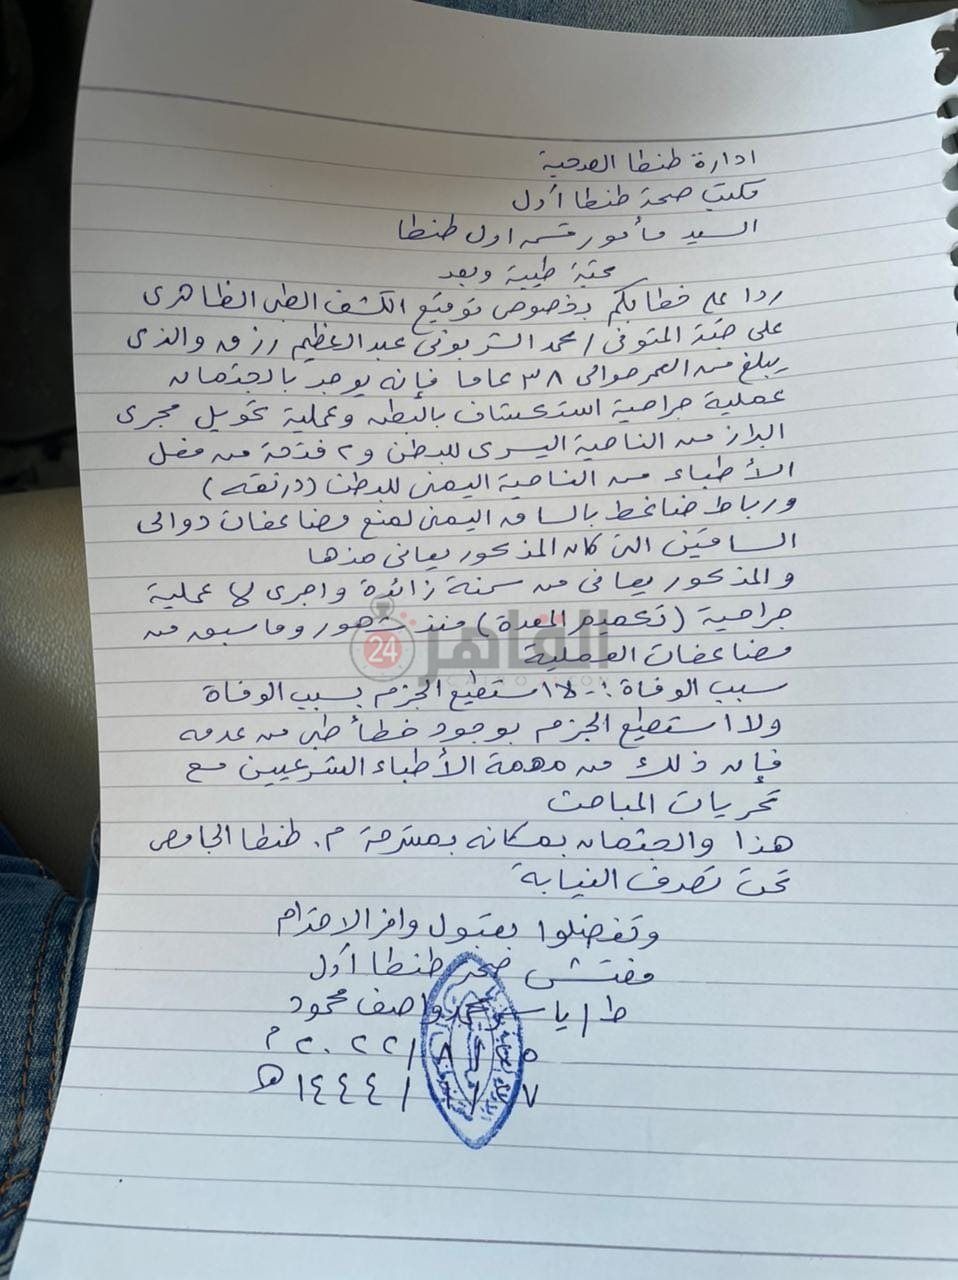 ادارة طنطا الصحية
مكتب صحة طنطا أول
السيد مأمور قسم اول طنطا
تحية طيبة وبعد
ردا على خطابكم بخصوص توقيع الكشف الطبى الظاهرى
على جثة المتوفى / محمد الشربونى عبد العظيم رزق والذى
يبلغ من العمر حوالى ٣٨ عاما فإنه يوجد بالجثمان
عملية جراحية استكشاف بالبطن وعملية تحويل مجرى
البراز من الناحية اليسرى للبطن و٢ فتحة من فعل
الأطباء من الناحية اليمنى للبطن (درنقة)
ورباط ضاغط بالساق اليمنى لمنع مضاعفات دوالى
الساقين التى كان المذكور يعانى منها
والمذكور يعانى من سمنة زائدة واجرى له عملية
جراحية (تكميم المعدة) منذ شهور وما سبق من
مضاعفات العملية
سبب الوفاة :- لا استطيع الجزم بسبب الوفاة
ولا استطيع الجزم بوجود خطأ طبى من عدمه
فإن ذلك من مهمة الأطباء الشرعيين مع
تحريات المباحث
هذا والجثمان بمكانه بمشرحة م. طنطا الجامعى
تحت تصرف النيابة
وتفضلوا بقبول وافر الاحترام
مفتش صحة طنطا أول
ط / ياسر محمد واصف محمود
٥ / ٨ / ٢٠٢٢ م
٧ / ١ / ١٤٤٤ هـ
القاهرة 24